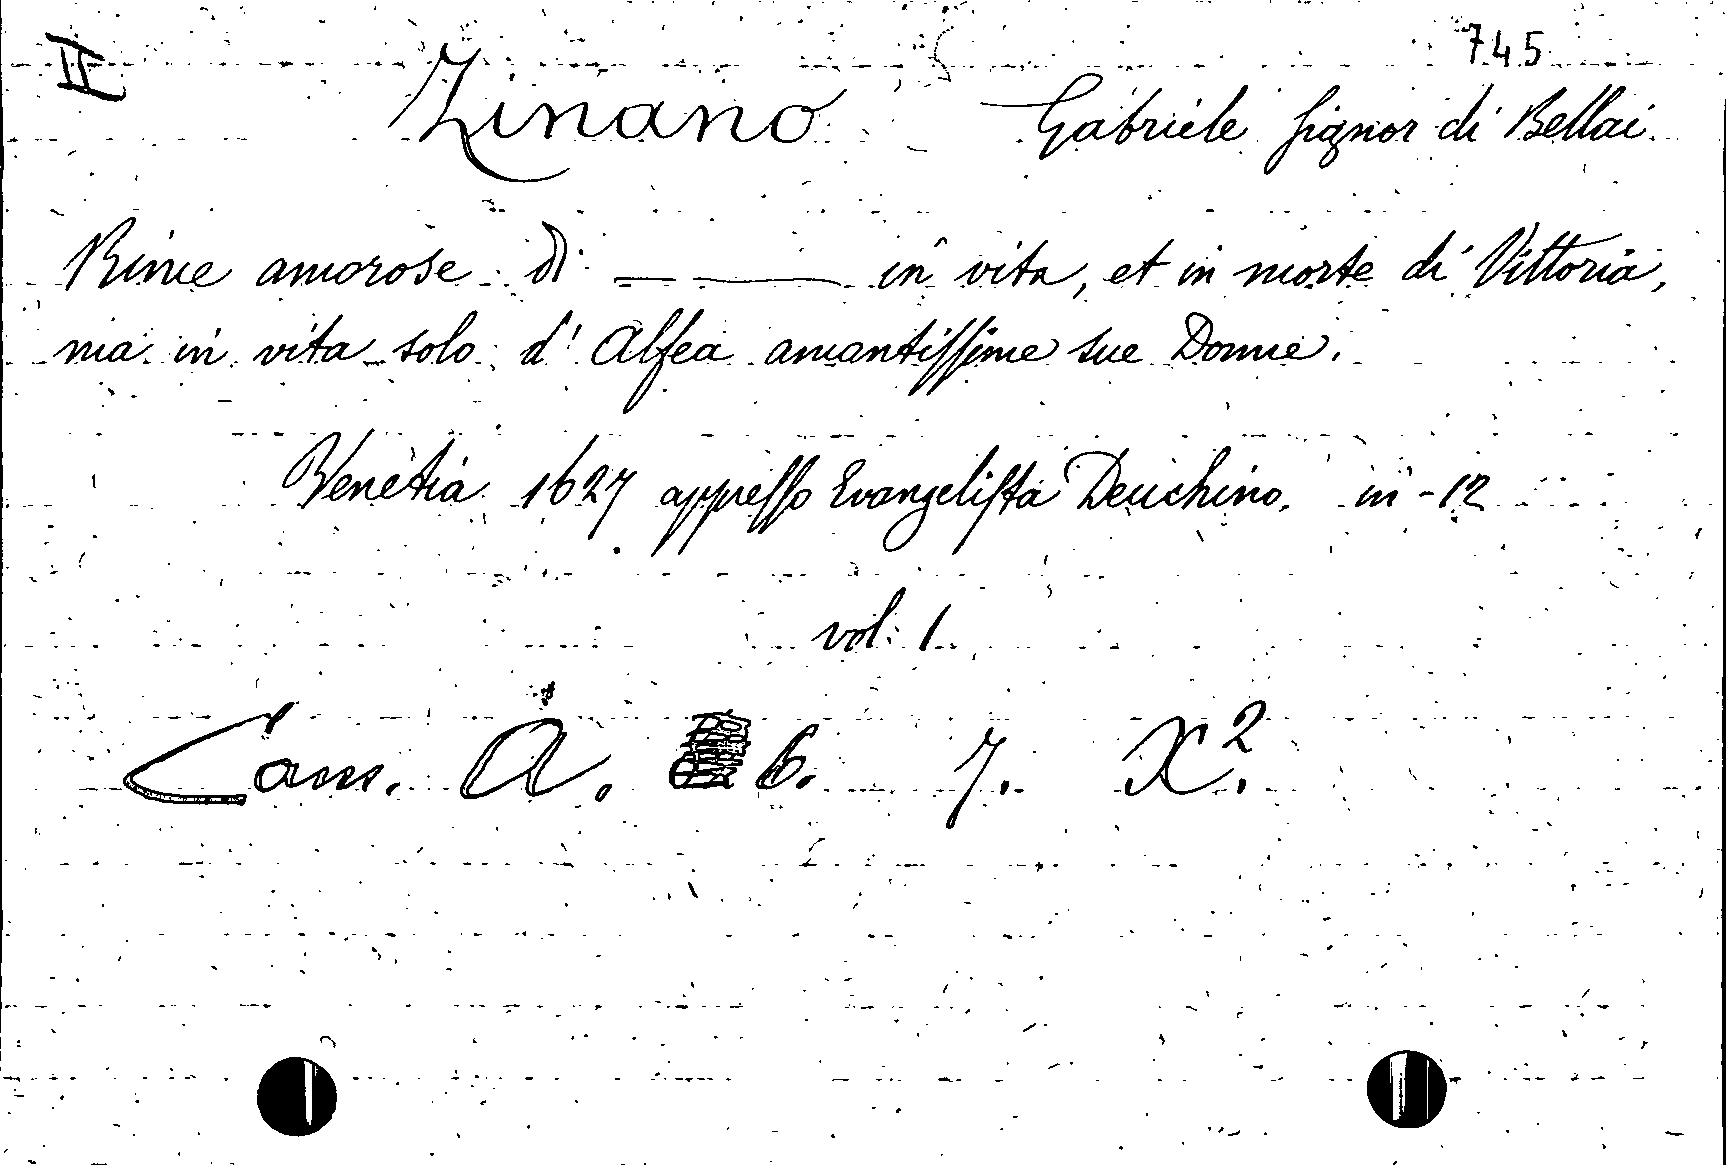 II
745
Zinano Gabriele Signor di Bellai
Rime amorose di — —— in vita, et in morte di Vittoria,
ma in vita solo d'Alfea amantissime sue Donne.
Venetia 1627 appresso Evangelista Deuchino. in-12
vol. 1
Cam. A. 6. 7. X².